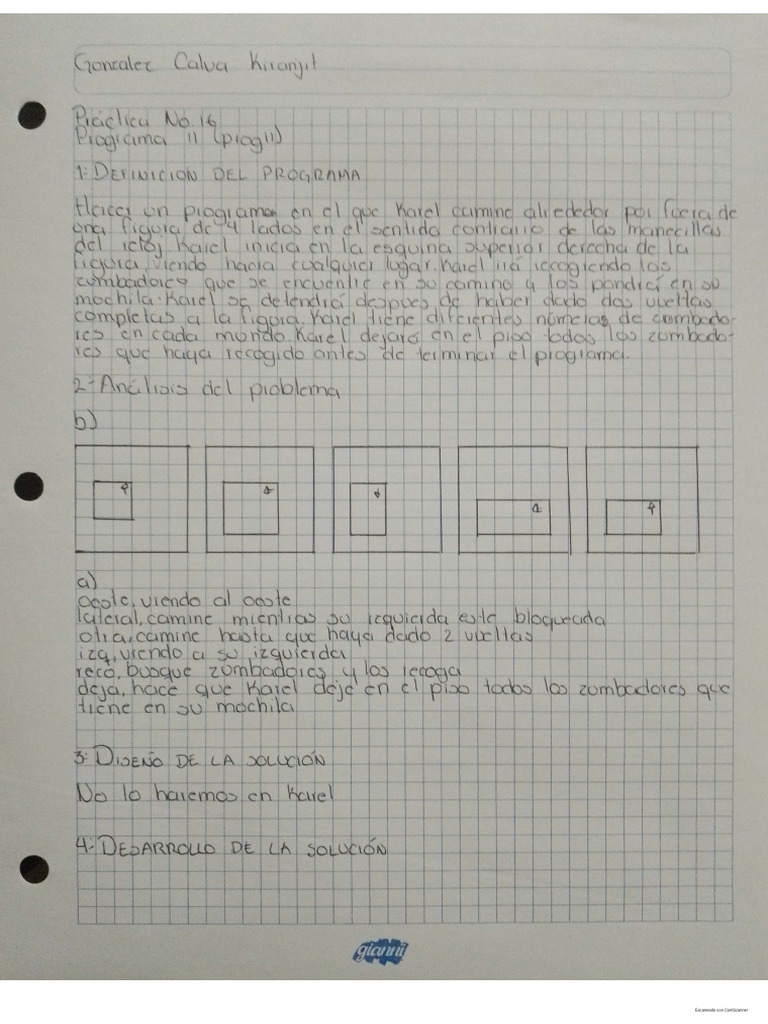 Gonzalez Calva Kiranjit
Práctica No. 16
Programa 11 (prog11)
1.- DEFINICION DEL PROGRAMA
Hacer un programa en el que Karel camine alrededor por fuera de
una figura de 4 lados en el sentido contrario de las manecillas
del reloj. Karel inicia en la esquina superior derecha de la
figura, viendo hacia cualquier lugar. Karel irá recogiendo los
zumbadores que se encuentre en su camino y los pondrá en su
mochila. Karel se detendrá despues de haber dado dos vueltas
completas a la figura. Karel tiene diferentes números de zumbado-
res en cada mundo. Karel dejara en el piso todos los zumbado-
res que haya recogido antes de terminar el programa.
2.- Análisis del problema
b)
a)
oeste, viendo al oeste
lateral, camine mientras su izquierda este bloqueada
otra, camine hasta que haya dado 2 vueltas
izq, viendo a su izquierda
reco, busque zumbadores y los recoga
deja, hace que Karel deje en el piso todos los zumbadores que
tiene en su mochila
3.- DISEÑO DE LA SOLUCIÓN
No lo haremos en Karel
4.- DESARROLLO DE LA SOLUCIÓN
gianni
Escaneado con CamScanner